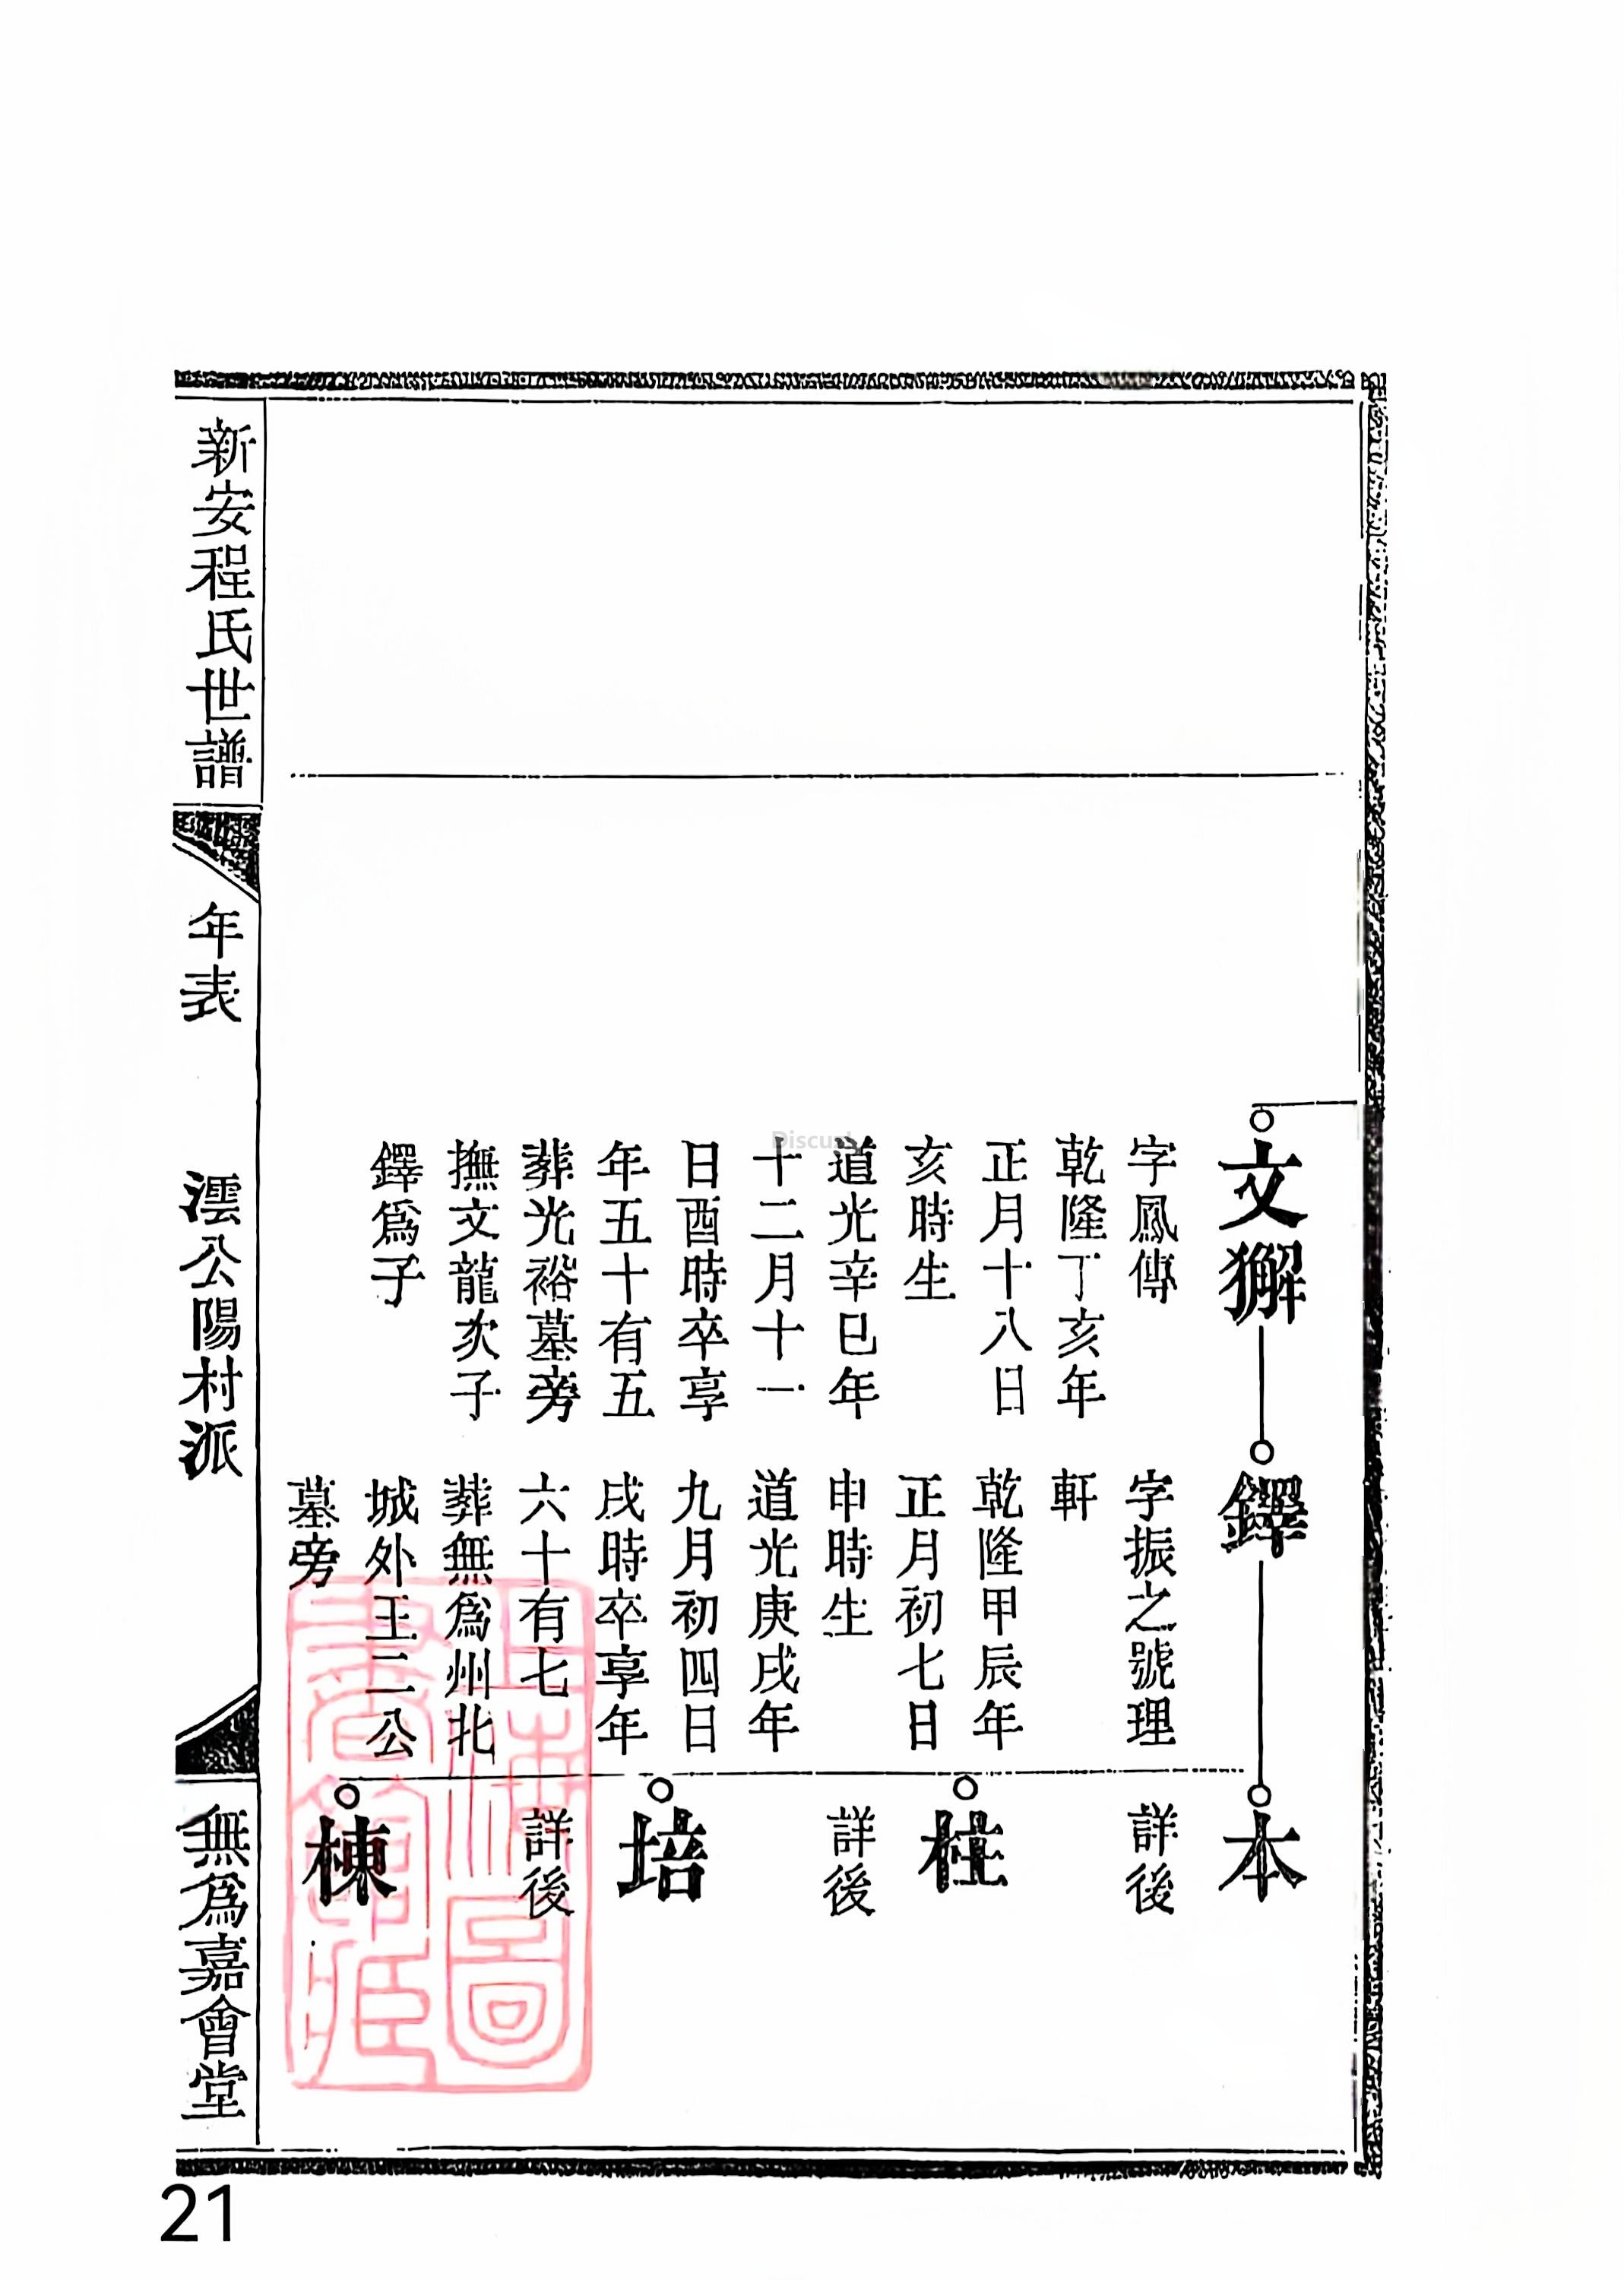 文獬
字鳳傳
乾隆丁亥年
正月十八日
亥時生
道光辛巳年
十二月十一
日酉時卒享
年五十有五
葬光裕墓旁
撫文龍次子
鐸爲子
鐸
字振之號理
軒
乾隆甲辰年
正月初七日
申時生
道光庚戌年
九月初四日
戌時卒享年
六十有七
葬無爲州北
城外王二公
墓旁
本
詳後
柱
詳後
培
詳後
棟
新安程氏世譜
年表
澐公陽村派
無爲嘉會堂
21